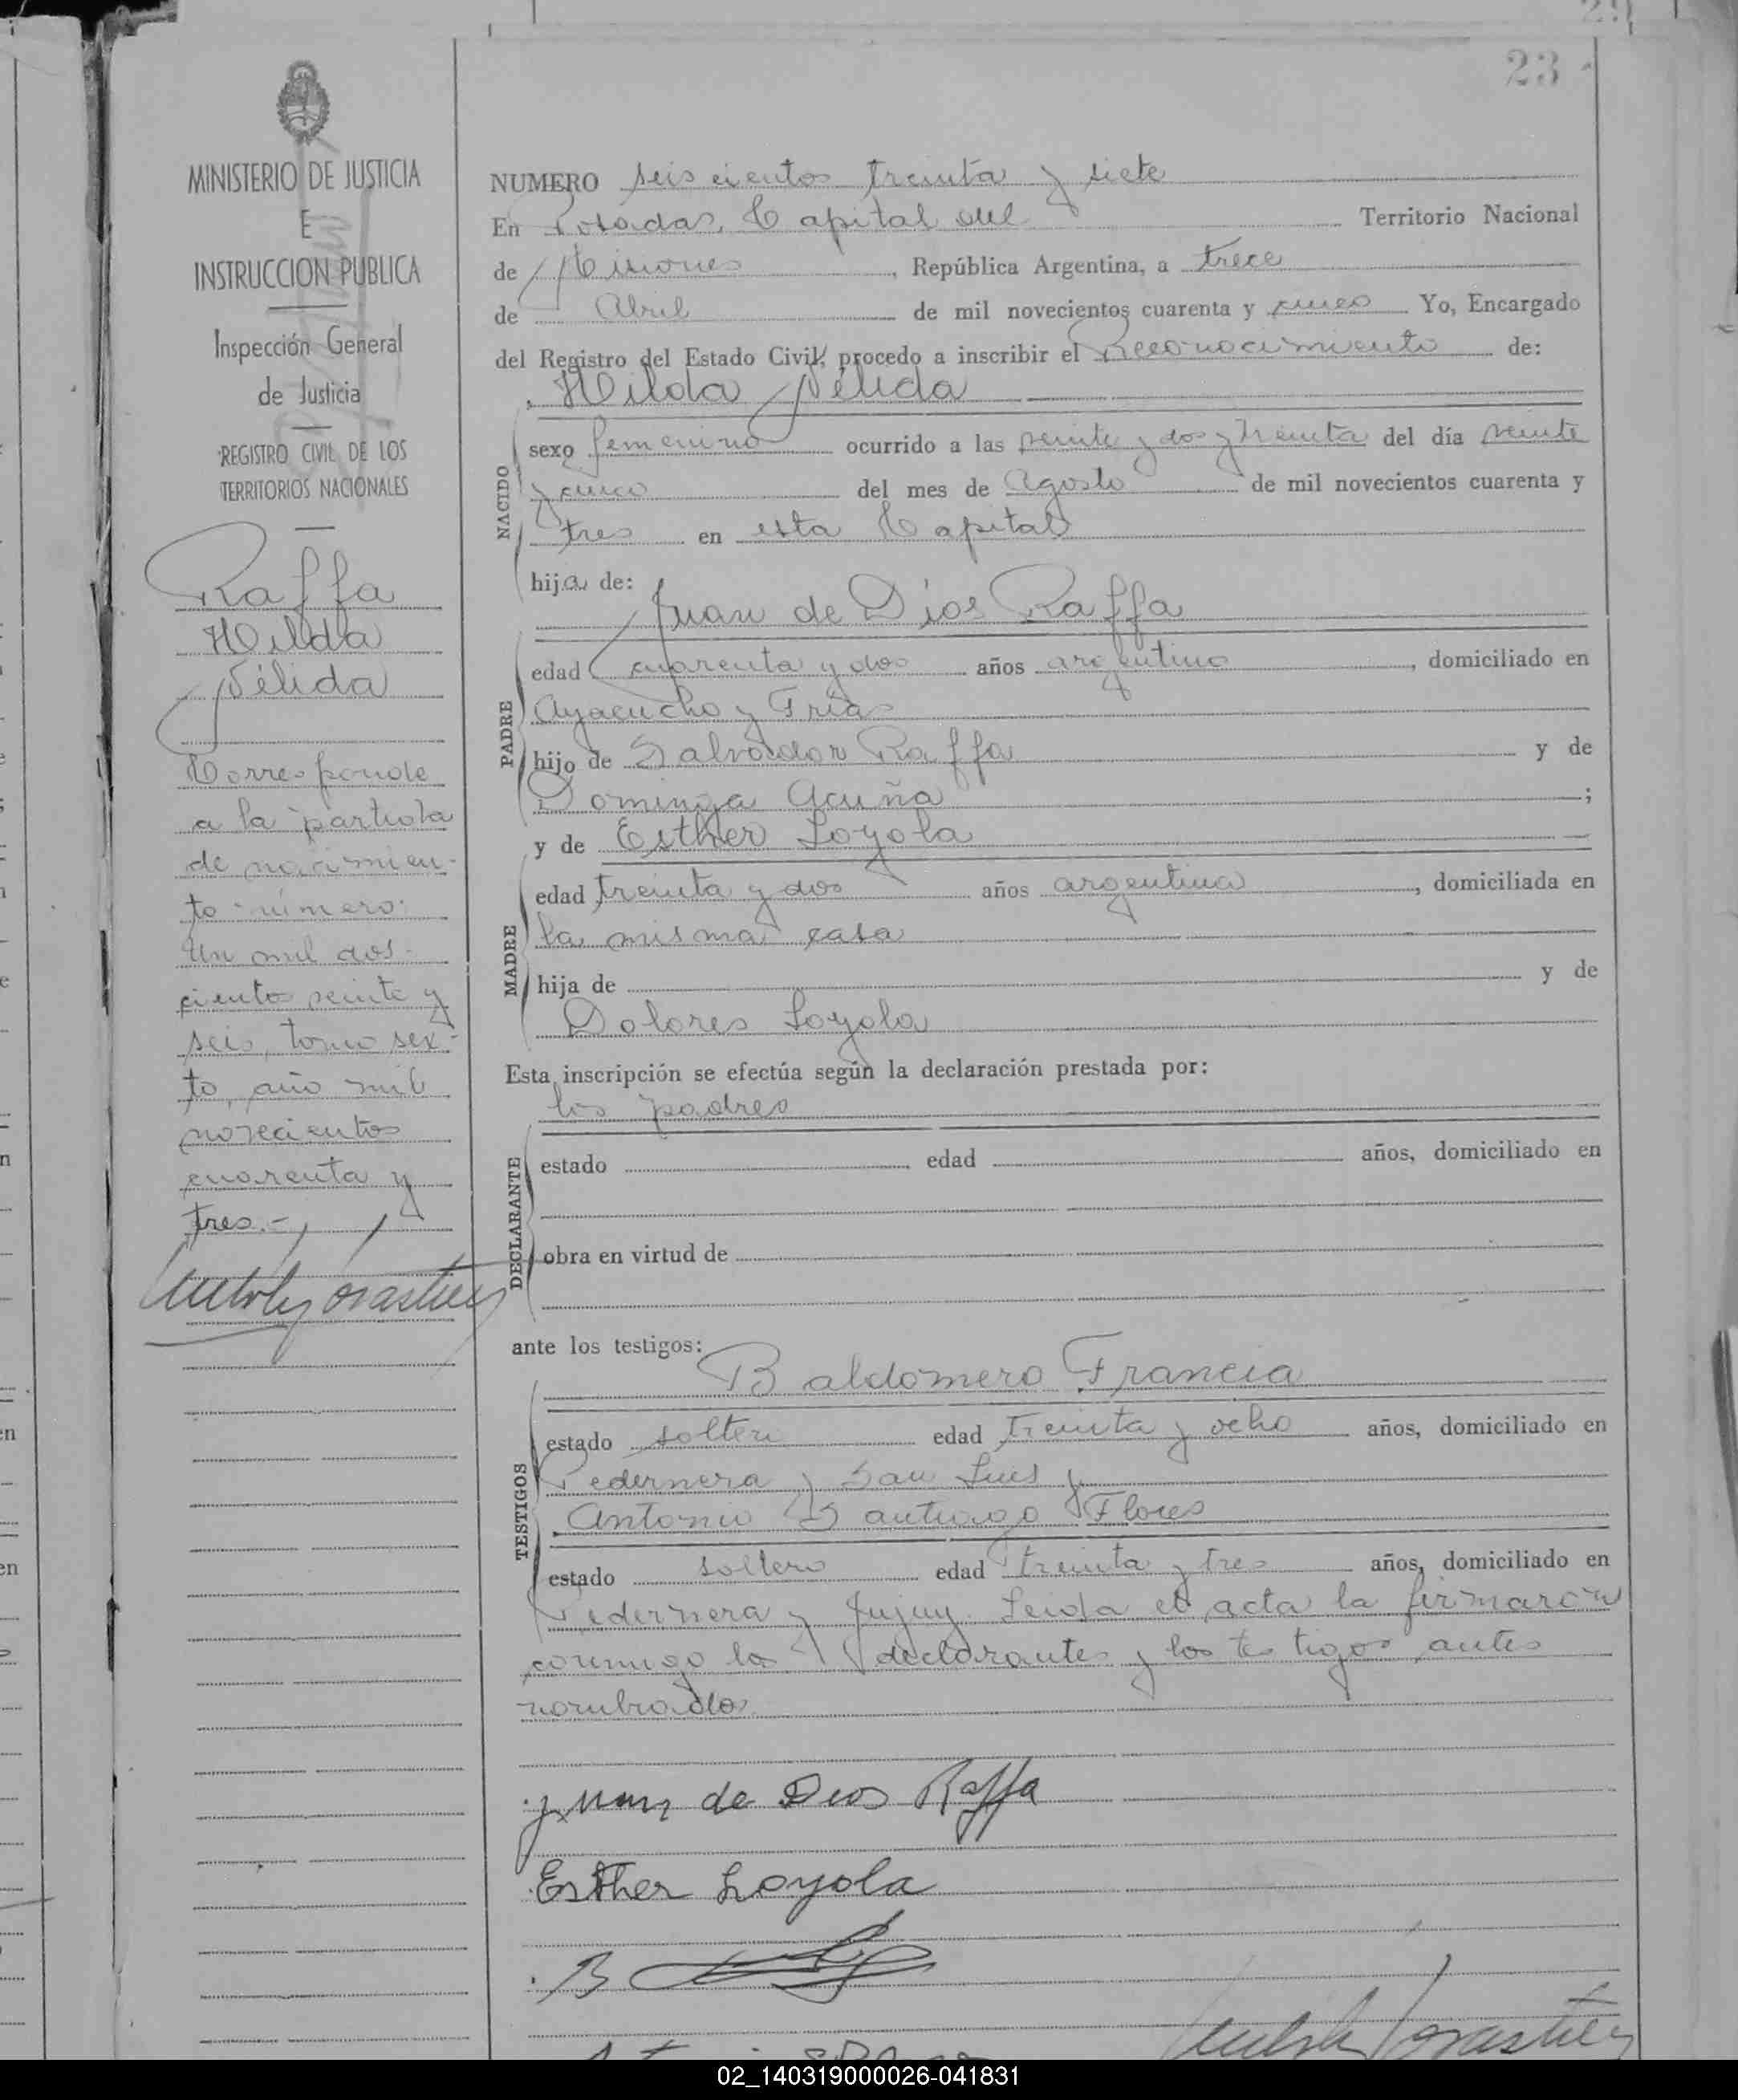 23
MINISTERIO DE JUSTICIA
E
INSTRUCCION PUBLICA
Inspección General
de Justicia
REGISTRO CIVIL DE LOS
TERRITORIOS NACIONALES
Raffa
Hilda
Nélida
Corresponde
a la partida
de nacimien-
to número:
Un mil dos-
cientos veinte y
seis, tomo sex-
to, año mil
novecientos
cuarenta y
tres.-
NUMERO seis cientos treinta y siete
En Posadas, Capital del Territorio Nacional
de Misiones, República Argentina, a trece
de Abril de mil novecientos cuarenta y cinco Yo, Encargado
del Registro del Estado Civil, procedo a inscribir el Reconocimiento de:
Hilda Nélida
NACIDO
sexo femenino ocurrido a las veinte y dos y treinta del día veinte
y cinco del mes de Agosto de mil novecientos cuarenta y
tres en esta Capital
hija de:
Juan de Dios Raffa
PADRE
edad cuarenta y dos años argentino, domiciliado en
Ayacucho y Frias
hijo de Salvador Raffa y de
Dominga Acuña;
y de Esther Loyola
MADRE
edad treinta y dos años argentina, domiciliada en
la misma casa
hija de y de
Dolores Loyola
Esta inscripción se efectúa según la declaración prestada por:
los padres
DECLARANTE
estado edad años, domiciliado en
obra en virtud de
ante los testigos:
Baldomero Francia
TESTIGOS
estado soltero edad treinta y ocho años, domiciliado en
Pedernera y San Luis y
Antonio Santiago Flores
estado soltero edad treinta y tres años, domiciliado en
Pedernera y Jujuy. Leida el acta la firmaron
conmigo los declarantes y los testigos antes
nombrados.
Juan de Dios Raffa
Esther Loyola
02_140319000026-041831